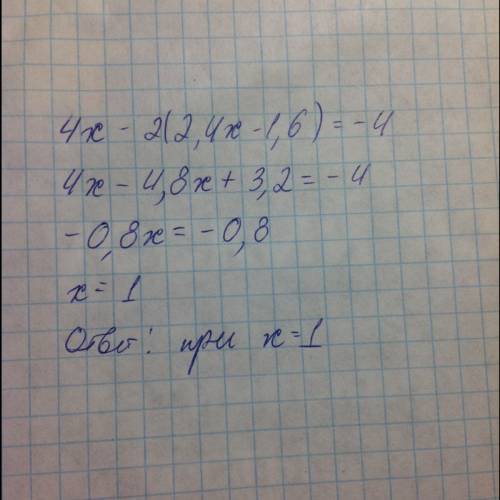 4x - 2(2,4x - 1,6) = -4
4x - 4,8x + 3,2 = -4
-0,8x = -0,8
x = 1
Ответ: при x = 1